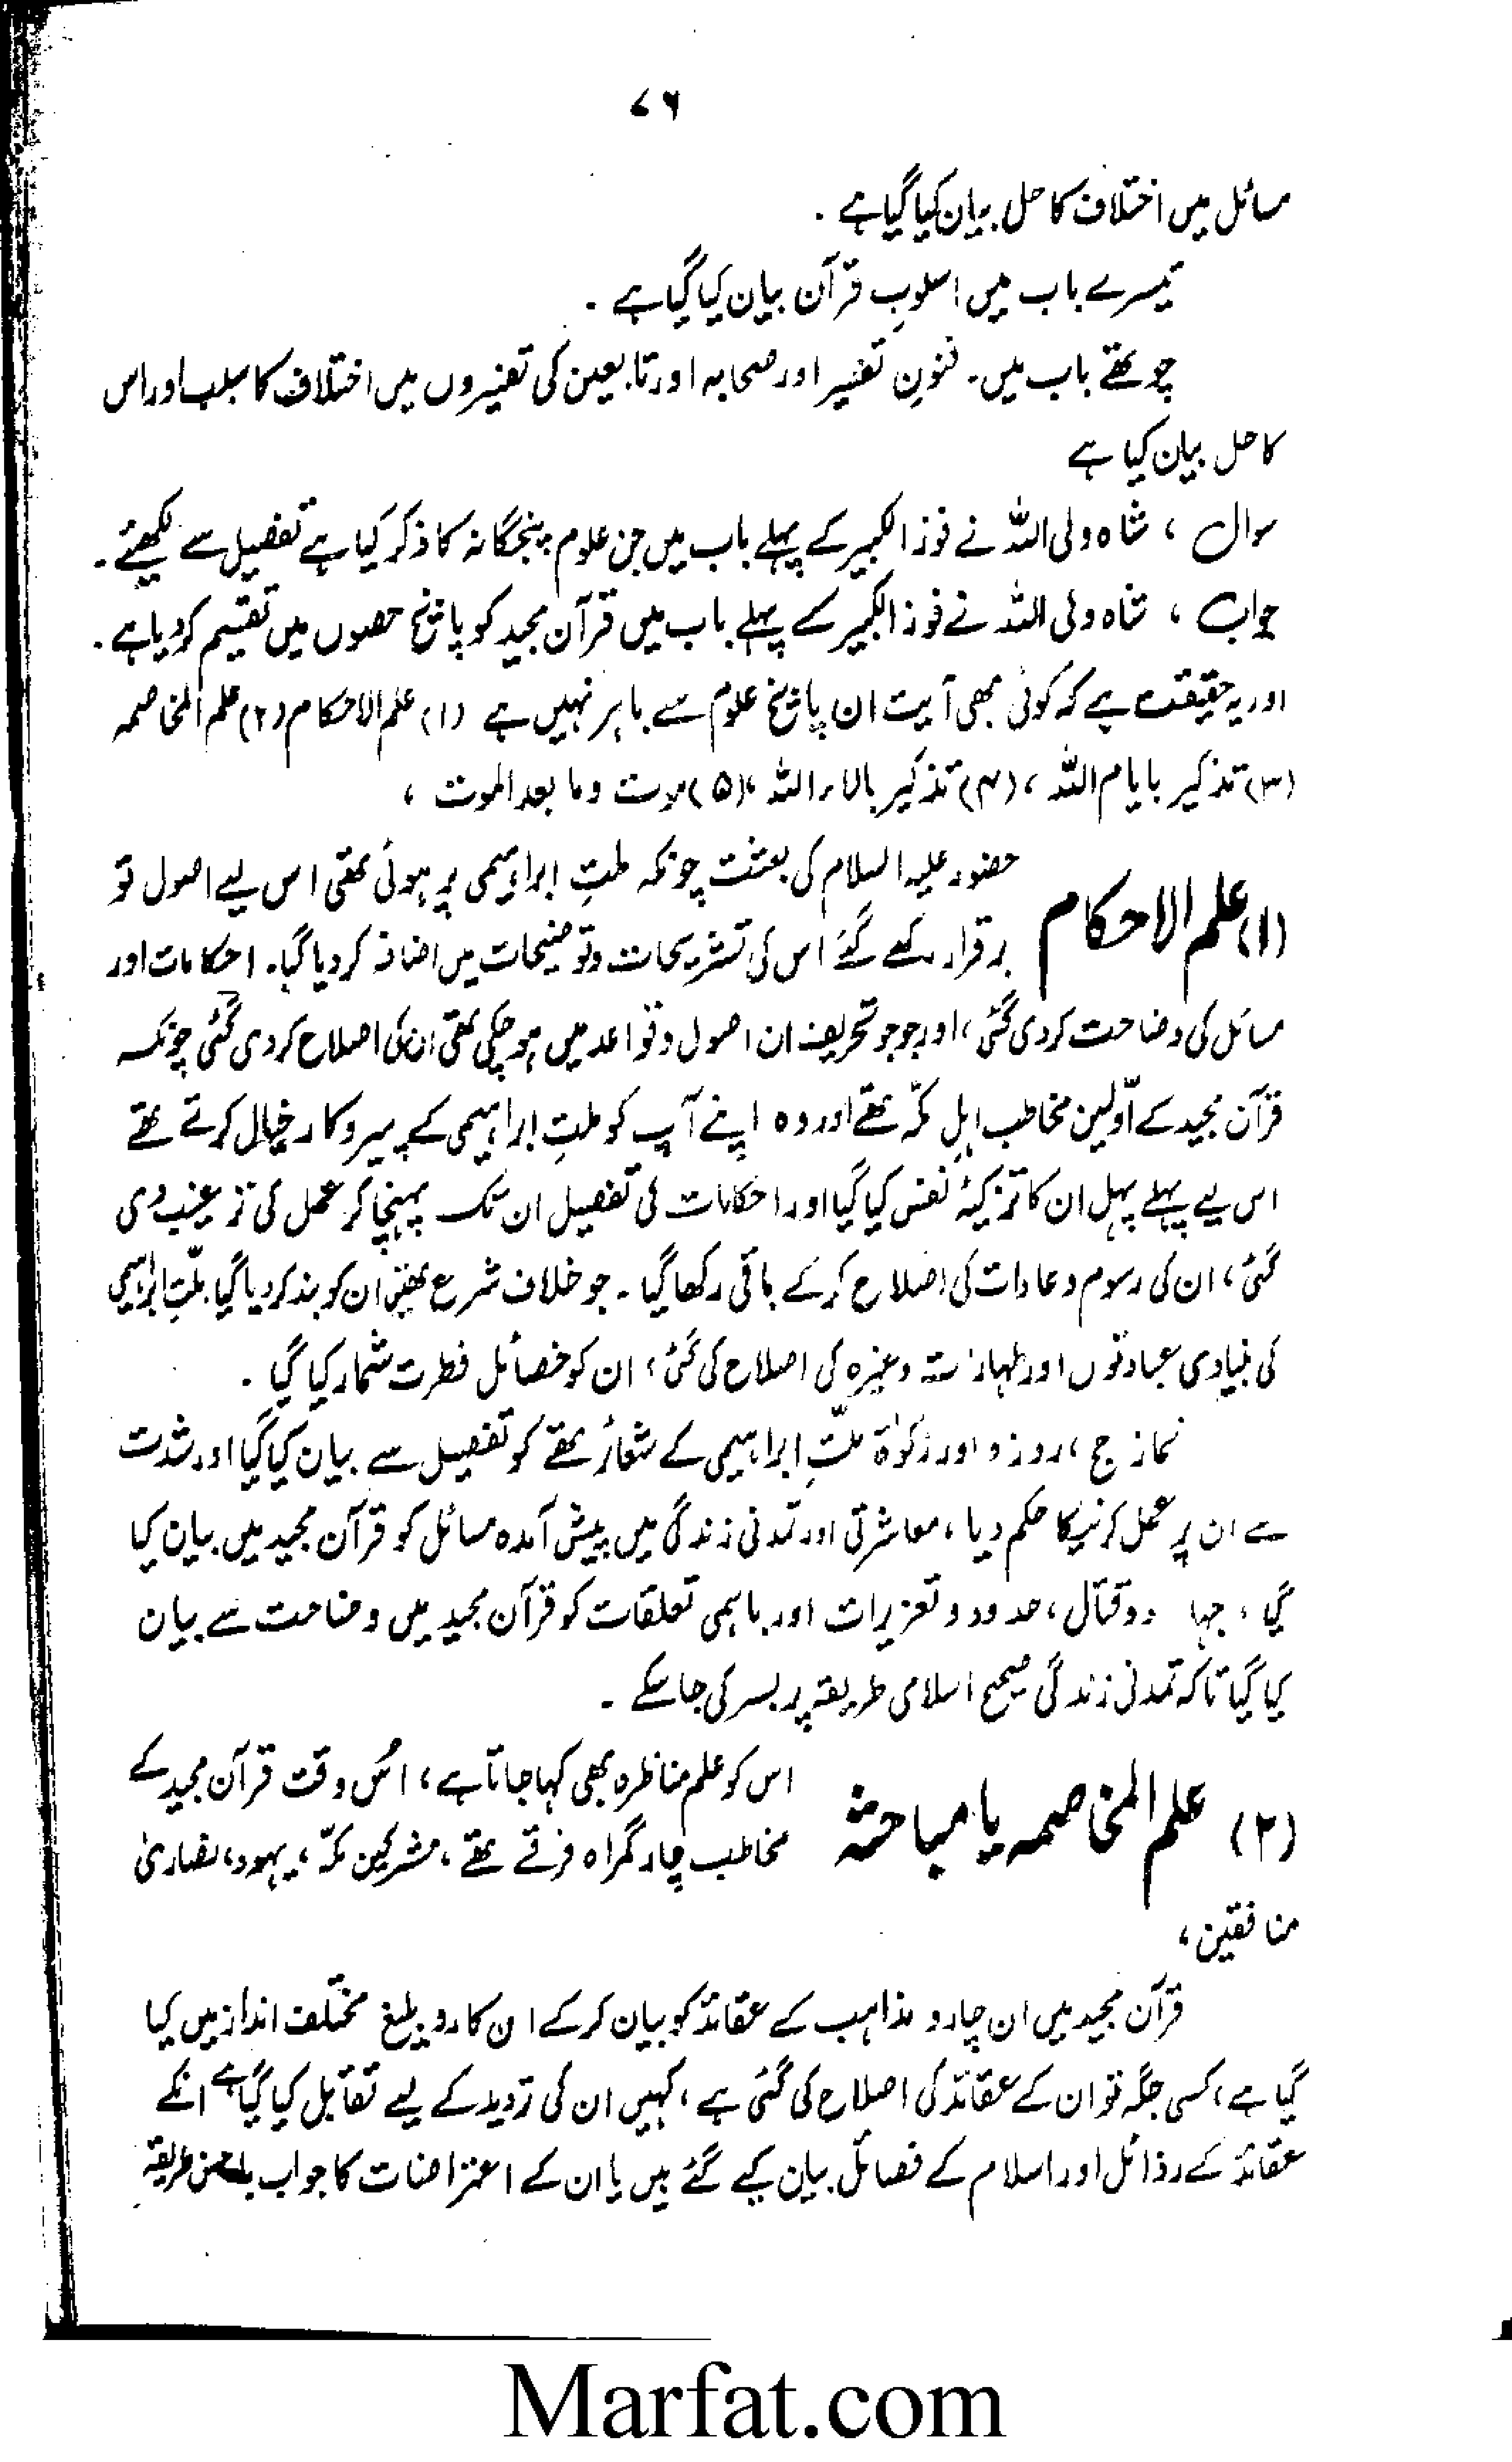 ۷۶
مسائل میں اختلاف کا حل بیان کیا گیا ہے ۔
تیسرے باب میں اسلوبِ قرآن بیان کیا گیا ہے ۔
چوتھے باب میں۔ فنونِ تفسیر اور صحابہ اور تابعین کی تفسیروں میں اختلاف کا سبب اور اس
کا حل بیان کیا ہے
سوال ، شاہ ولی اللہ نے فوز الکبیر کے پہلے باب میں جن علوم پنجگانہ کا ذکر کیا ہے تفصیل سے لکھئے ۔
جواب ، شاہ ولی اللہ نے فوز الکبیر کے پہلے باب میں قرآن مجید کو پانچ حصوں میں تقسیم کر دیا ہے ۔
اور یہ حقیقت ہے کہ کوئی بھی آیت ان پانچ علوم سے باہر نہیں ہے (۱) علم الاحکام (۲) علم المخاصمہ
(۳) تذکیر بایام اللہ ، (۴) تذکیر بالاء اللہ ، (۵) موت وما بعد الموت ،
(۱) علم الاحکام حضور علیہ السلام کی بعثت چونکہ ملتِ ابراہیمی پر ہوئی تھی اس لیے اصول تو
برقرار رکھے گئے اس کی تشریحات و توضیحات میں اضافہ کر دیا گیا۔ احکامات اور
مسائل کی وضاحت کر دی گئی ، اور جو جو تحریف ان اصول و قواعد میں ہو چکی تھی ان کی اصلاح کر دی گئی چونکہ
قرآن مجید کے اوّلین مخاطب اہلِ مکّہ تھے اور وہ اپنے آپ کو ملتِ ابراہیمی کے پیروکار خیال کرتے تھے
اس لیے پہلے پہل ان کا تزکیۂ نفس کیا گیا اور احکامات کی تفصیل ان تک پہنچا کر عمل کی ترغیب دی
گئی ، ان کی رسوم و عادات کی اصلاح کر کے باقی رکھا گیا ۔ جو خلاف شرع تھیں ان کو بند کر دیا گیا ملّتِ ابراہیمی
کی بنیادی عبادتوں اور طہارت وغیرہ کی اصلاح کی گئی ، ان کو خصائل فطرت شمار کیا گیا ۔
نماز حج ، روزہ اور زکوٰۃ ملّتِ ابراہیمی کے شعائر تھے کو تفصیل سے بیان کیا گیا اور شدت
سے ان پر عمل کرنیکا حکم دیا ، معاشرتی اور تمدنی زندگی میں پیش آمدہ مسائل کو قرآن مجید میں بیان کیا
گیا ، جہاد و قتال ، حدود و تعزیرات اور باہمی تعلقات کو قرآن مجید میں وضاحت سے بیان
کیا گیا تاکہ تمدنی زندگی صحیح اسلامی طریقہ پر بسر کی جا سکے ۔
(۲) علم المخاصمہ یا مباحثہ اس کو علم مناظرہ بھی کہا جاتا ہے ، اُس وقت قرآن مجید کے
مخاطب چار گمراہ فرقے تھے ، مشرکین مکّہ ، یہود ، نصاریٰ
منافقین ،
قرآن مجید میں ان چارو مذاہب کے عقائد کو بیان کر کے ان کا رو بلیغ مختلف انداز میں کیا
گیا ہے ، کسی جگہ تو ان کے عقائد کی اصلاح کی گئی ہے ، کہیں ان کی تردید کے لیے تقابل کیا گیا ہے انکے
عقائد کے رذائل اور اسلام کے فصائل بیان کیے گئے ہیں یا ان کے اعتراضات کا جواب طریقہ
Marfat.com